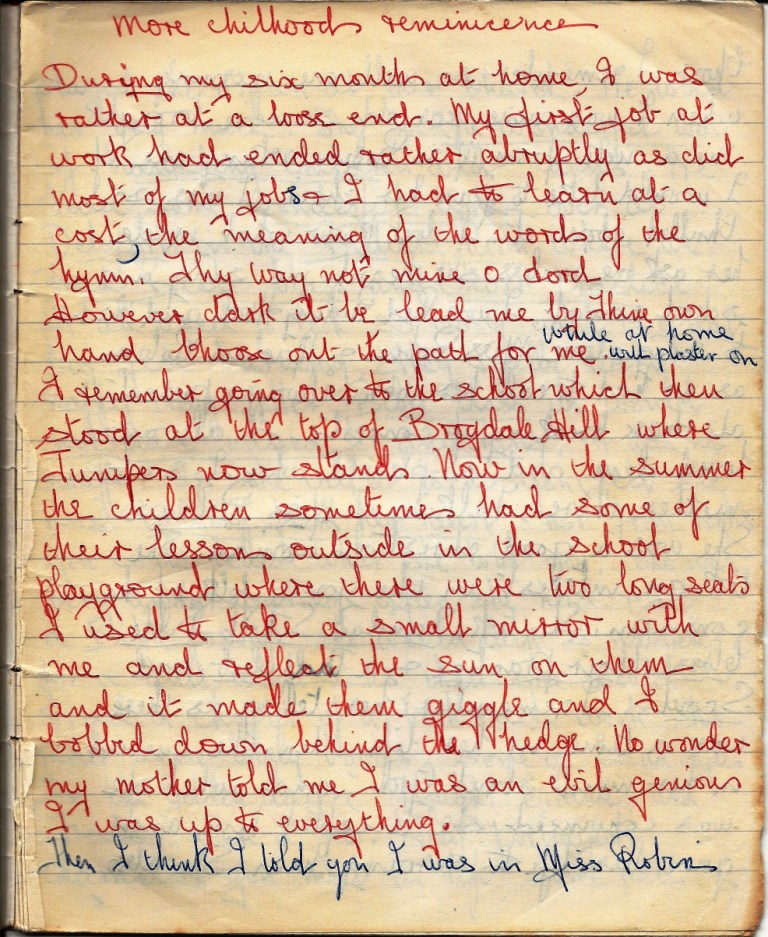 More chilhood reminicence
During my six months at home I was
rather at a loose end. My first job at
work had ended rather abruptly as did
most of my jobs & I had to learn at a
cost, the meaning of the words of the
hymn. Thy way not mine O Lord
However dark it be lead me by Thine own
hand Choose out the path for me. while at home
with plaster on
I remember going over to the school which then
stood at the top of Brogdale Hill where
Junipers now stands. Now in the summer
the children sometimes had some of
their lessons outside in the school
playground where there were two long seats
I used to take a small mirror with
me and reflect the sun on them
and it made them giggle and I
bobbed down behind the hedge. No wonder
my mother told me I was an evil genious
I was up to everything.
Then I think I told you I was in Miss Robins